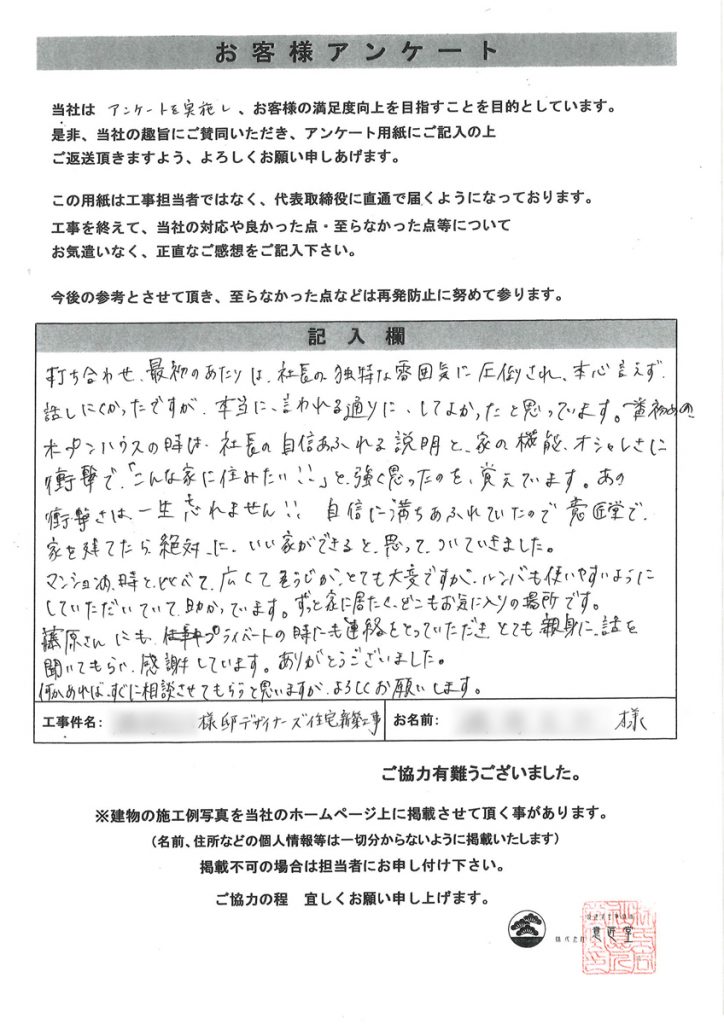 お客様アンケート
当社は アンケートを実施し、お客様の満足度向上を目指すことを目的としています。
是非、当社の趣旨にご賛同いただき、アンケート用紙にご記入の上
ご返送頂きますよう、よろしくお願い申しあげます。
この用紙は工事担当者ではなく、代表取締役に直通で届くようになっております。
工事を終えて、当社の対応や良かった点・至らなかった点等について
お気遣いなく、正直なご感想をご記入下さい。
今後の参考とさせて頂き、至らなかった点などは再発防止に努めて参ります。
記入欄
打ち合わせ、最初のあたりは、社長の独特な雰囲気に圧倒され、本心言えず、
話しにくかったですが、本当に、言われる通りに、してよかったと思っています。一番初めの
オープンハウスの時は、社長の自信あふれる説明と、家の機能、オシャレさに
衝撃で、「こんな家に住みたい!!」と、強く思ったのを、覚えています。あの
衝撃さは、一生忘れません!! 自信に満ちあふれていたので意匠堂で、
家を建てたら絶対に、いい家ができると思って、ついていきました。
マンションの時と、比べて、広くてそうじが、とても大変ですが、ルンバも使いやすいように
していただいていて、助かっています。ずっと家に居たく、どこもお気に入りの場所です。
藤原さんにも、プライベートの時にも連絡をとっていただきとても親身に、話を
聞いてもらい、感謝しています。ありがとうございました。
何かあれば、すぐに相談させてもらうと思いますが、よろしくお願いします。
工事件名: 様邸デザイナーズ住宅新築工事 お名前: 様
ご協力有難うございました。
※建物の施工例写真を当社のホームページ上に掲載させて頂く事があります。
（名前、住所などの個人情報等は一切分からないように掲載いたします）
掲載不可の場合は担当者にお申し付け下さい。
ご協力の程 宜しくお願い申し上げます。
株式会社 意匠堂